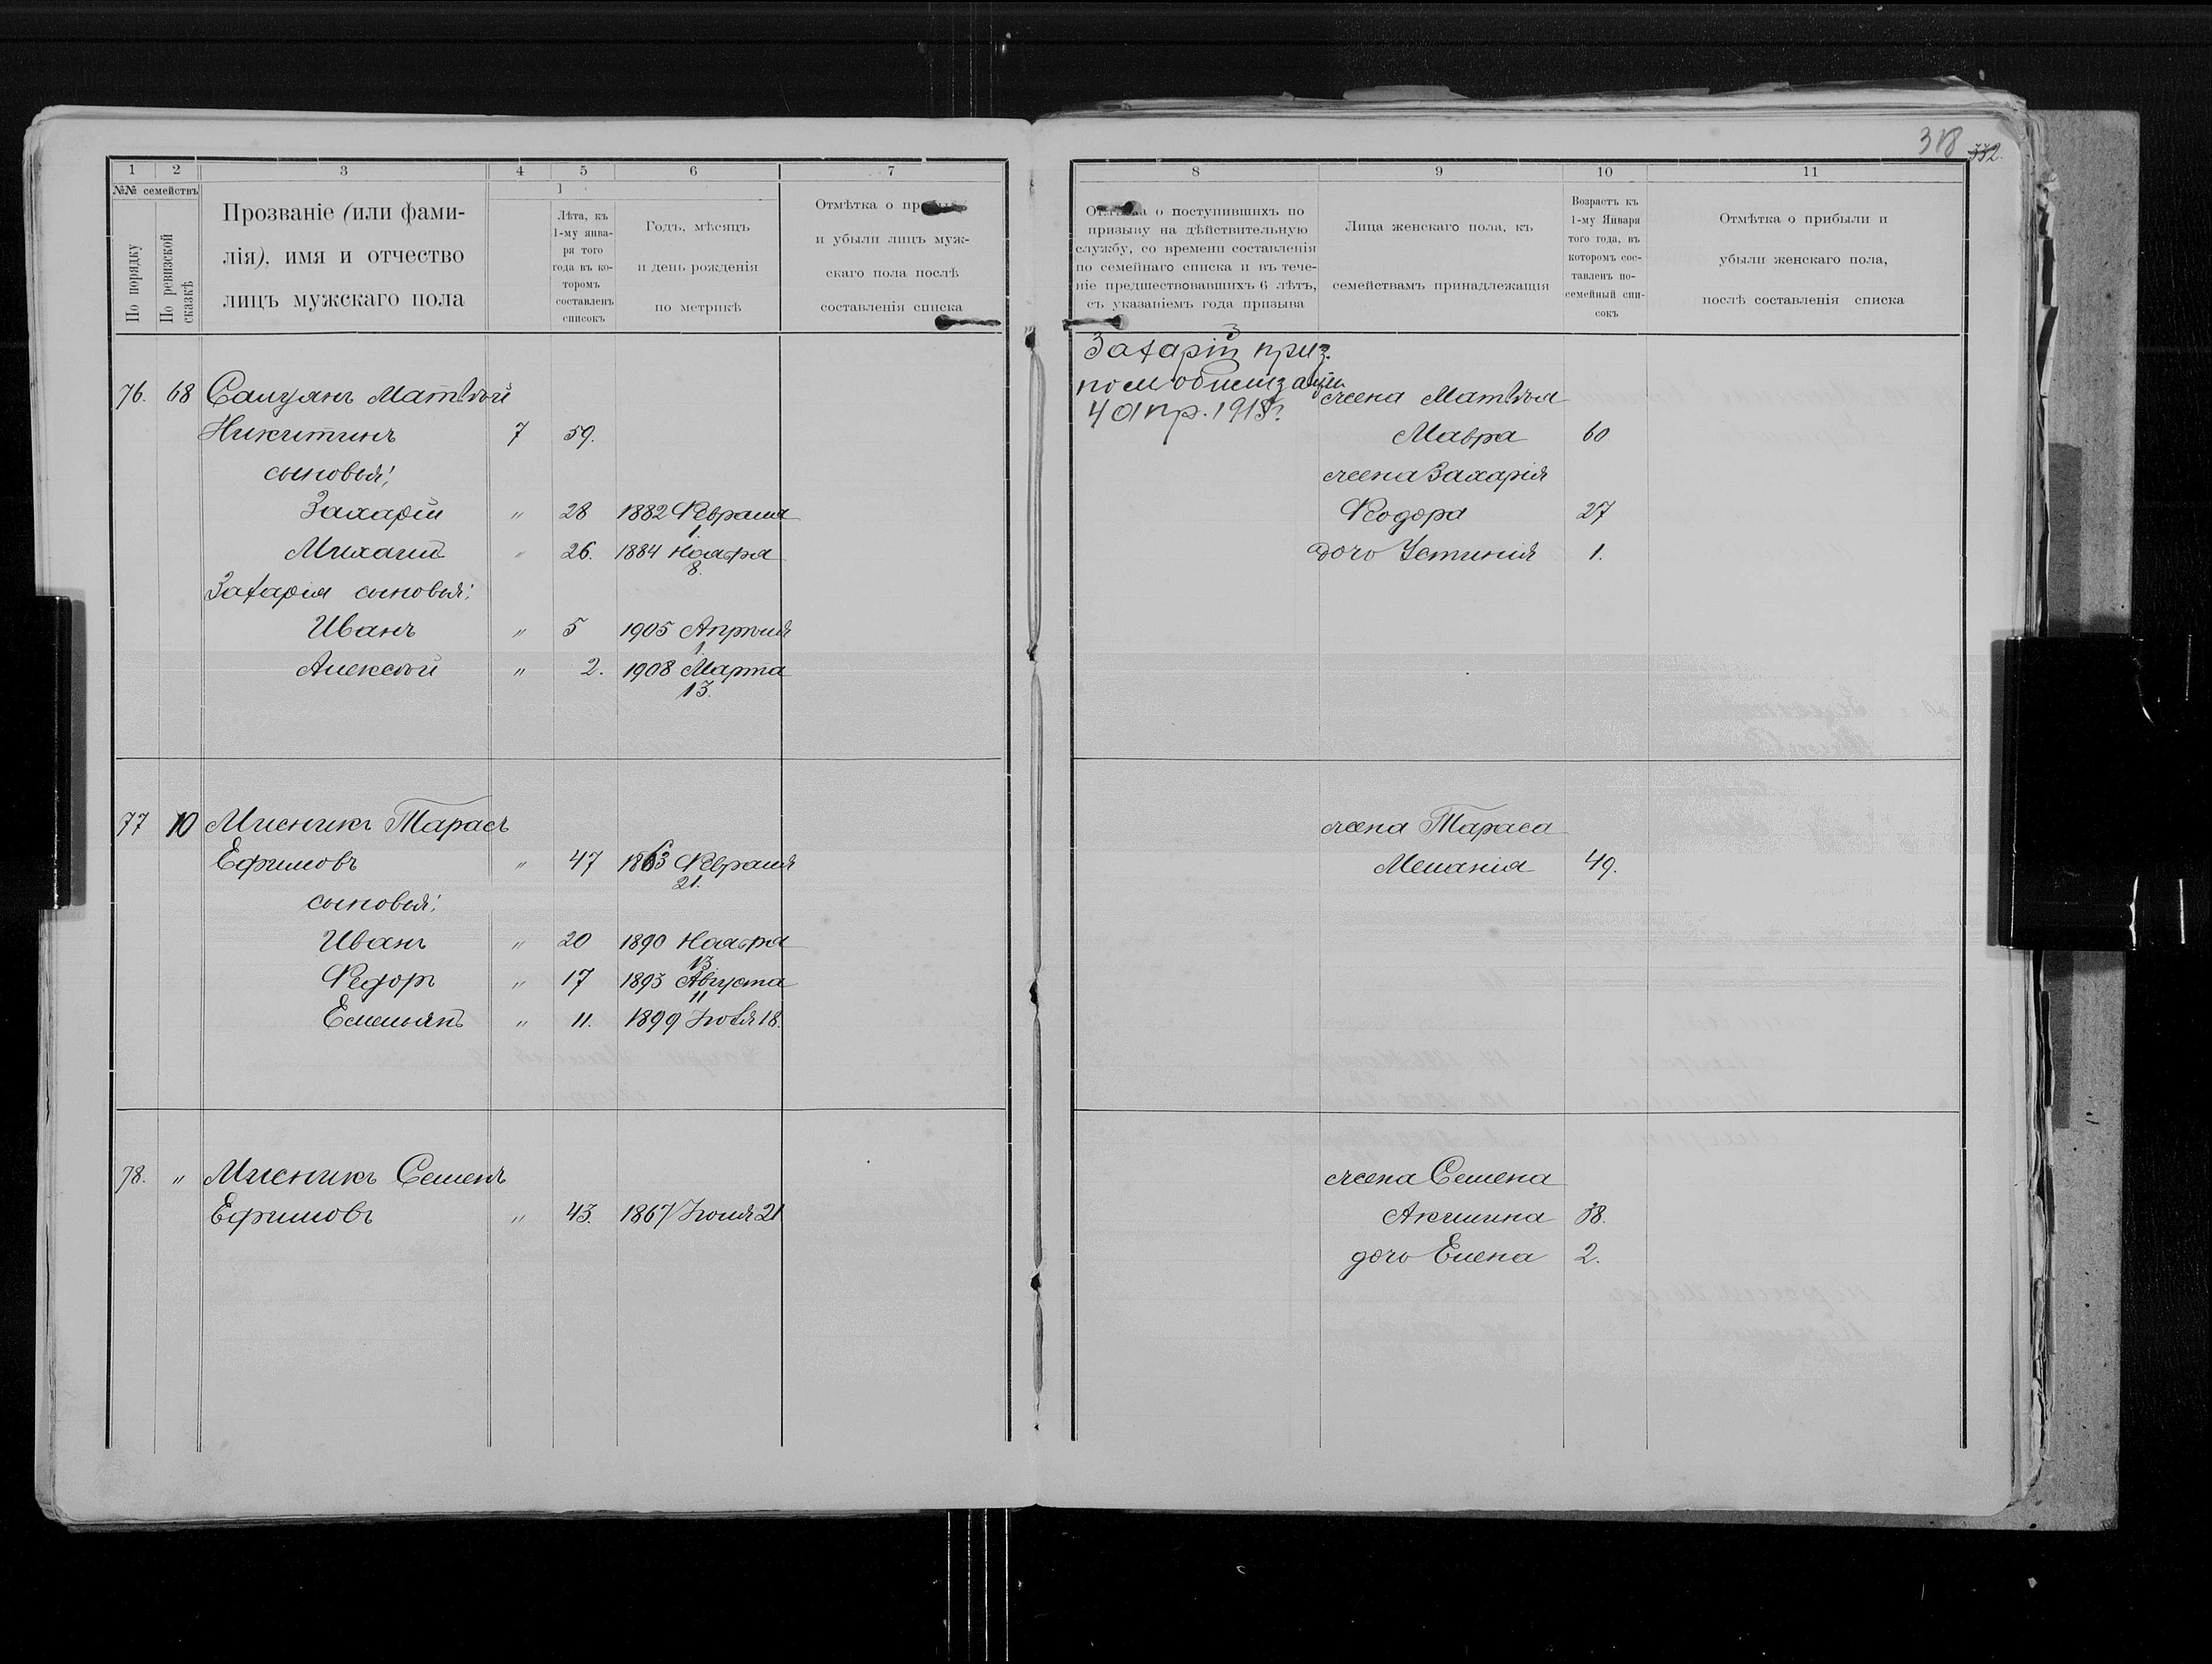 1 2 3 4 5 6 7
№№ семействъ
По порядку
По ревизской сказкѣ
Прозваніе (или фами-
лія), имя и отчество
лицъ мужскаго пола
Лѣта, къ
1-му янва-
ря того
года въ ко-
торомъ
составленъ
списокъ
Годъ, мѣсяцъ
и день рожденія
по метрикѣ
Отмѣтка о
и убыли лицъ муж-
скаго пола послѣ
составленія списка
76. 68 Салуянъ Матвѣй
Никитинъ 7 59.
сыновья:
Захарій " 28 1882 Февраля
1.
Михаил " 26. 1884 Ноября
8.
Захарія сыновья:
Иванъ " 5 1905 Апрѣля
1.
Алексѣй " 2. 1908 Марта
13.
77 10 Мисникъ Тарасъ
Ефимовъ " 47 1863 Февраля
21.
сыновья:
Иванъ " 20 1890 Ноября
13.
Федоръ " 17 1893 Августа
11
Емельянъ " 11. 1899 Іюля 18.
78. " Мисникъ Семенъ
Ефимовъ " 43. 1867 Іюля 21
318 332.
8 9 10 11
о поступившихъ по
призыву на дѣйствительную
службу, со времени составленія
по семейнаго списка и въ тече-
ніе предшествовавшихъ 6 лѣтъ,
съ указаніемъ года призыва
Лица женскаго пола, къ
семействамъ принадлежащія
Возрастъ къ
1-му Января
того года, въ
которомъ сос-
тавленъ по-
семейный спи-
сокъ
Отмѣтка о прибыли и
убыли женскаго пола,
послѣ составленія списка
Захарій приз.
по мобилизаціи
4 апр. 1915 г.
жена Матвѣя
Мавра 60
жена Захарія
Феодора 27
дочь Устинія 1.
жена Тараса
Меланія 49.
жена Семена
Акилина 38.
дочь Елена 2.